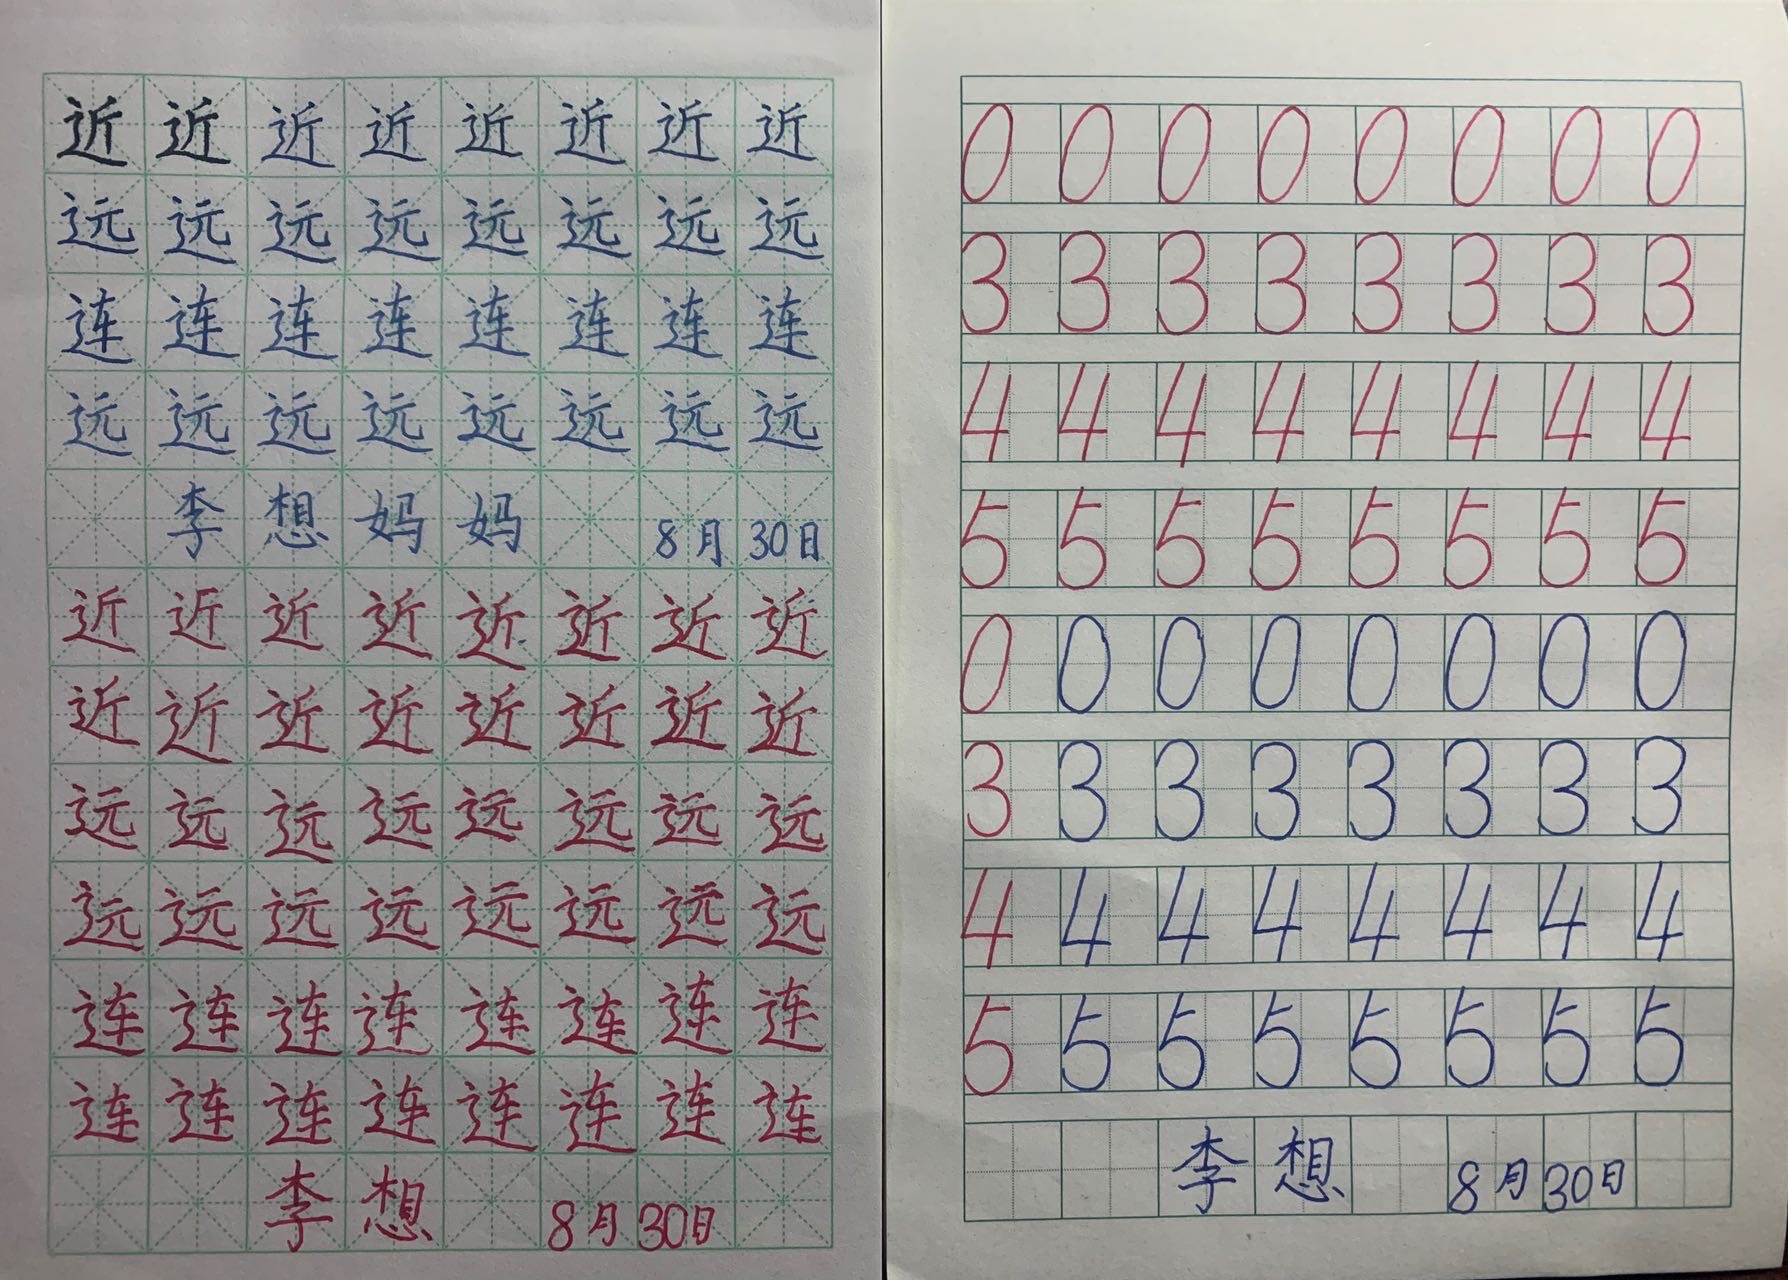 近近近近近近近近
远远远远远远远远
连连连连连连连连
远远远远远远远远
李想妈妈 8月30日
近近近近近近近近
近近近近近近近近
远远远远远远远远
远远远远远远远远
连连连连连连连连
连连连连连连连连
李想 8月30日
0 0 0 0 0 0 0 0
3 3 3 3 3 3 3 3
4 4 4 4 4 4 4 4
5 5 5 5 5 5 5 5
0 0 0 0 0 0 0 0
3 3 3 3 3 3 3 3
4 4 4 4 4 4 4 4
5 5 5 5 5 5 5 5
李想 8月30日